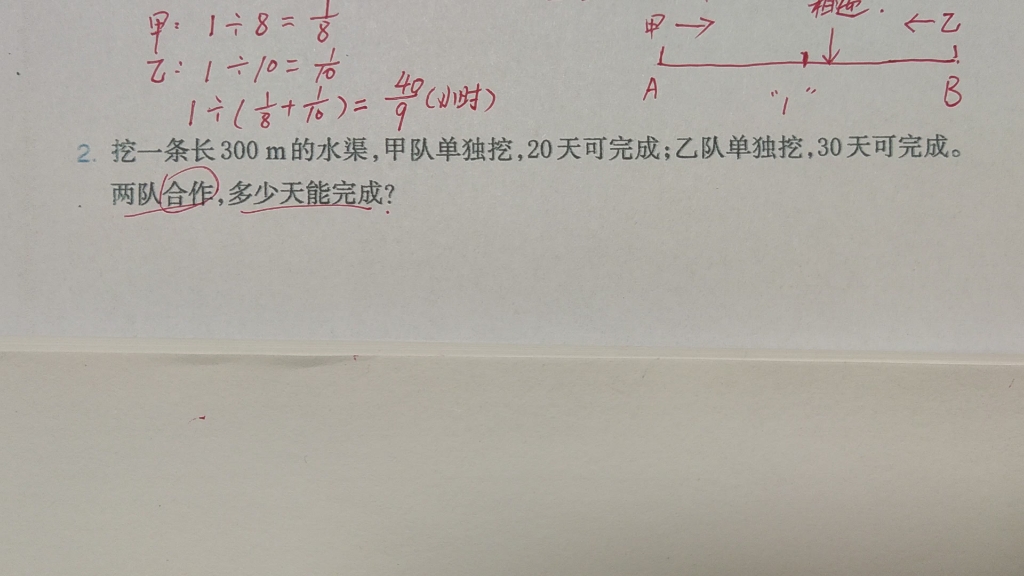 甲: 1÷8=1/8
乙: 1÷10=1/10
1÷(1/8+1/10)=40/9(小时)
相遇.
甲→ ←乙
A "1" B
2. 挖一条长300 m的水渠,甲队单独挖,20天可完成;乙队单独挖,30天可完成。
两队合作,多少天能完成?